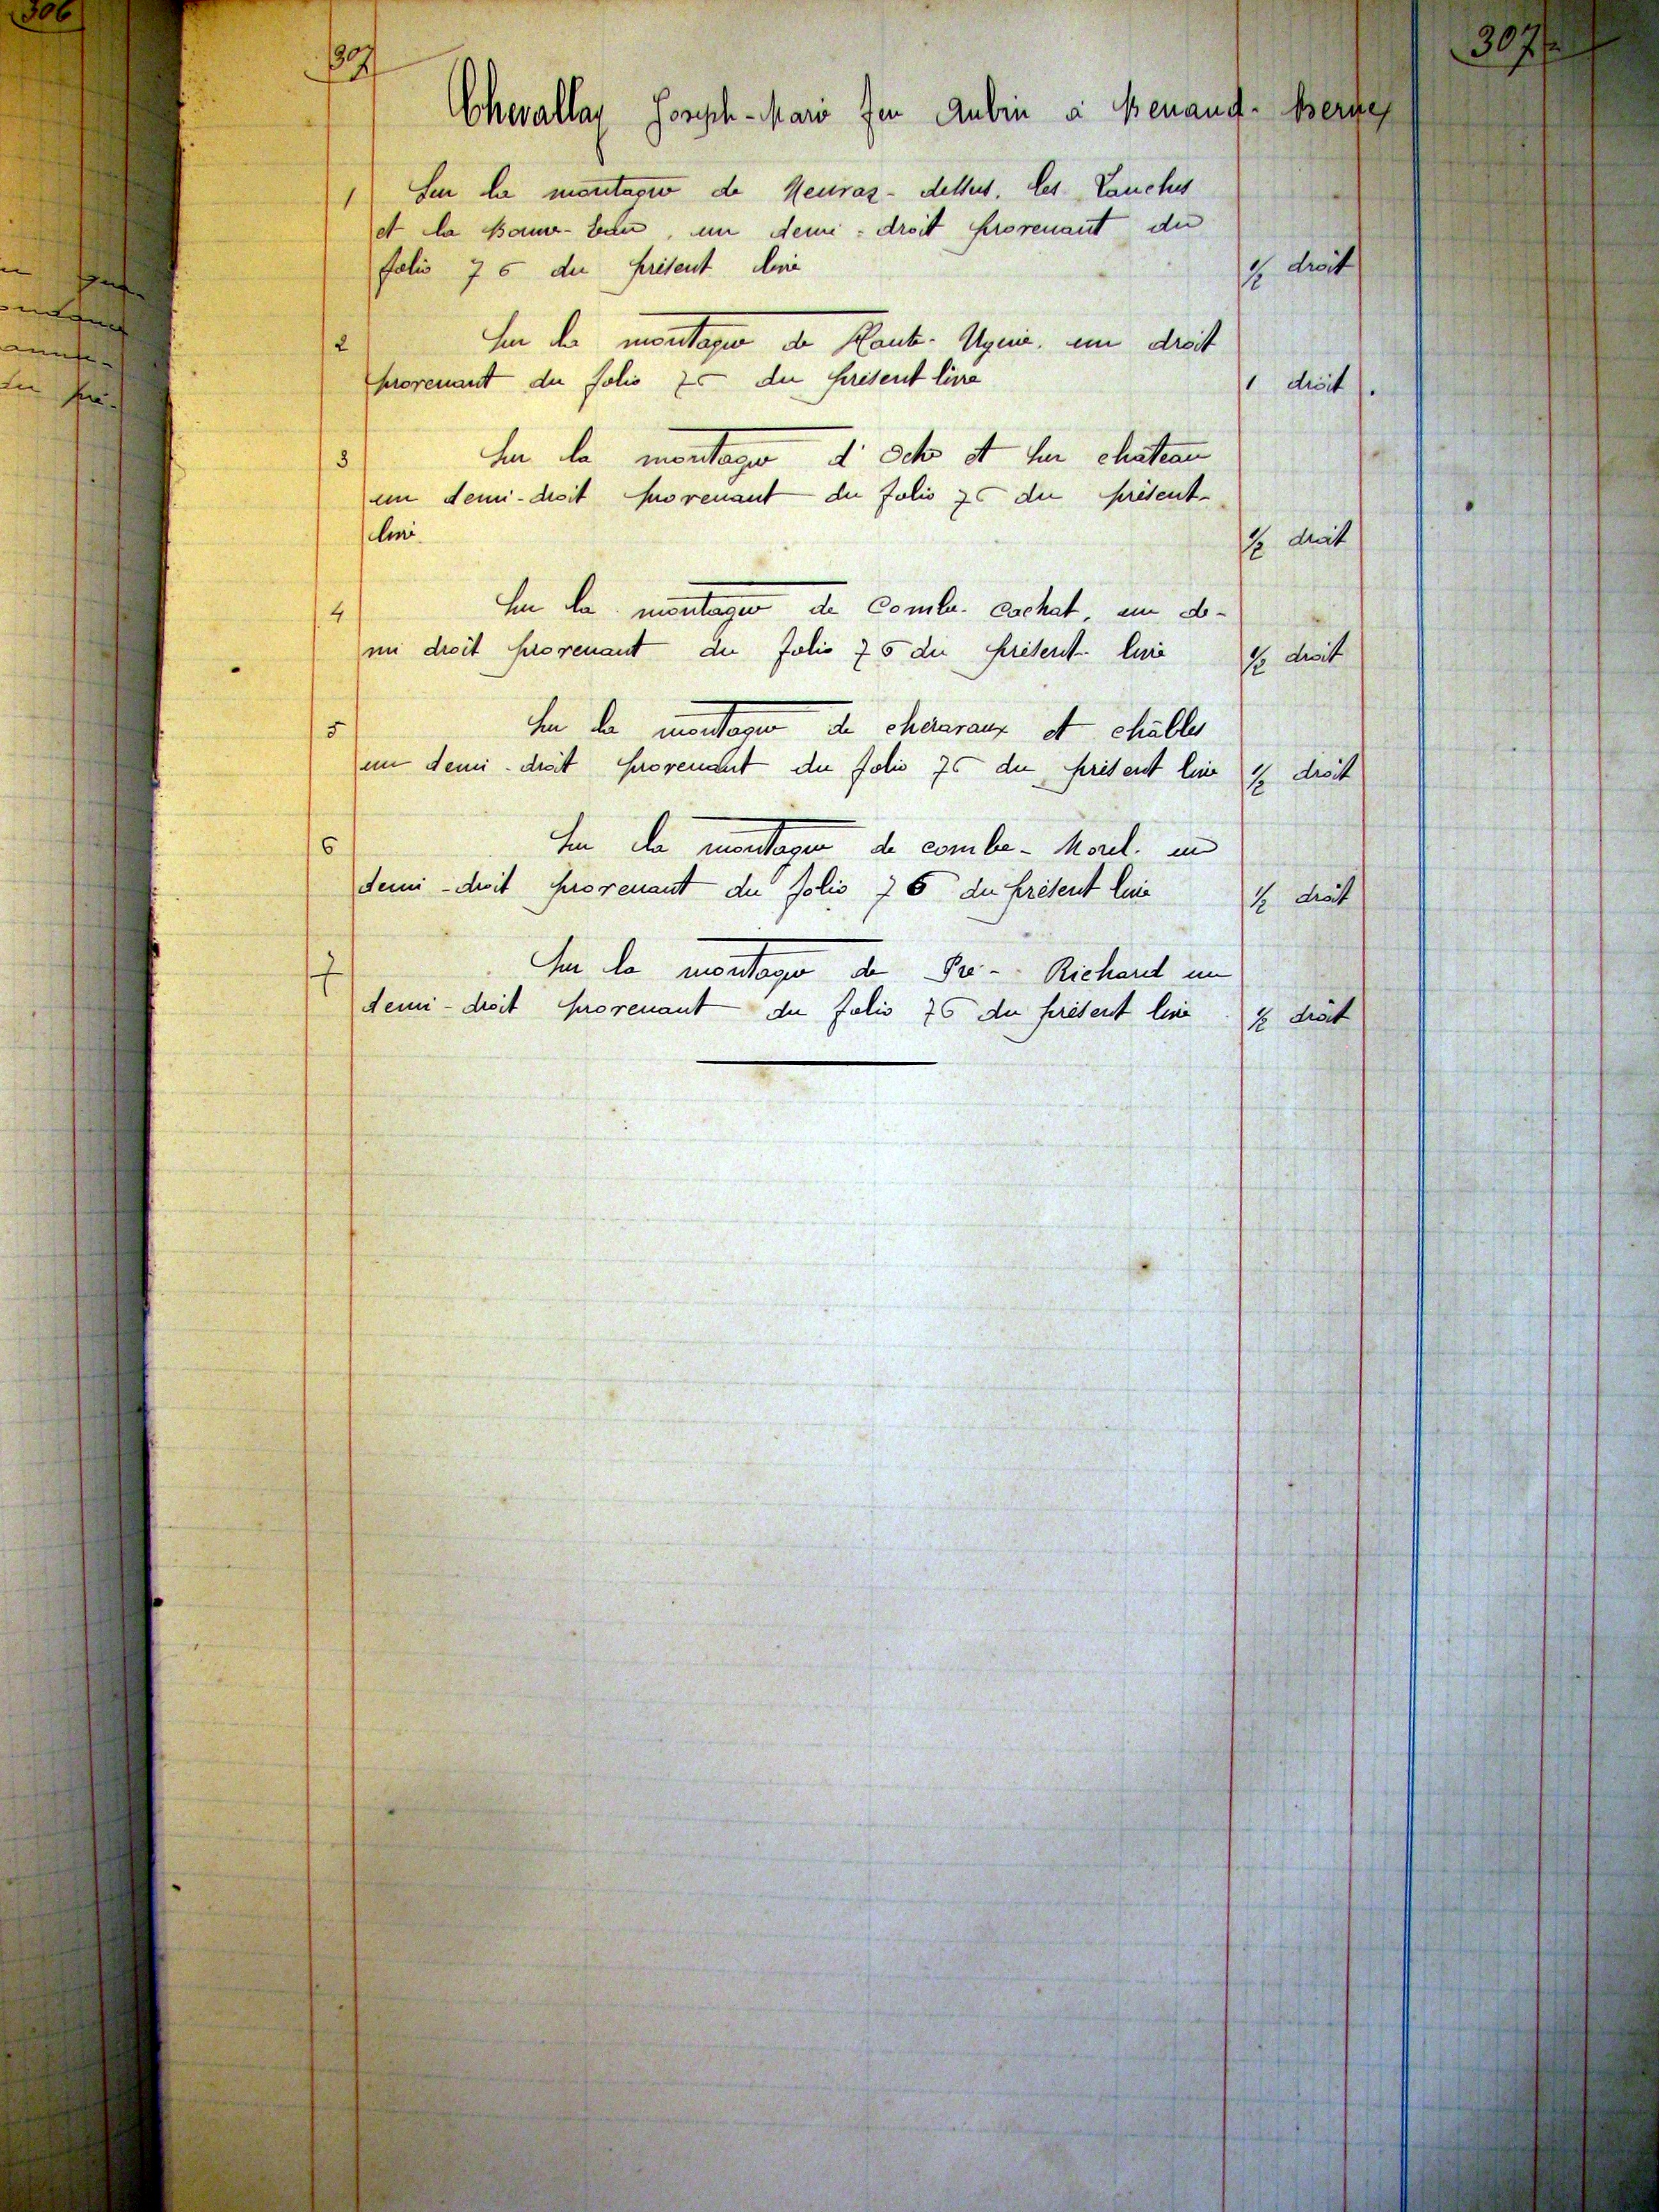 306
307
307
Chevallay Joseph-Marie feu Aubin à Benand-Bernex
1 Sur la montagne de Neuvaz-dessus, les Tanches
et la Bonne-Eau, un demi-droit provenant du
folio 76 du présent livre 1/2 droit
2 Sur la montagne de Haute-Ugine, un droit
provenant du folio 76 du présent livre 1 droit.
3 Sur la montagne d'Oche et sur château
un demi-droit provenant du folio 76 du présent
livre 1/2 droit
4 Sur la montagne de Combe-Cachat, un de-
mi droit provenant du folio 76 du présent livre 1/2 droit
5 Sur la montagne de chevraux et châlles
un demi-droit provenant du folio 76 du présent livre 1/2 droit
6 Sur la montagne de combe-Morel. un
demi-droit provenant du folio 76 du présent livre 1/2 droit
7 Sur la montagne de Pré-Richard un
demi-droit provenant du folio 76 du présent livre 1/2 droit